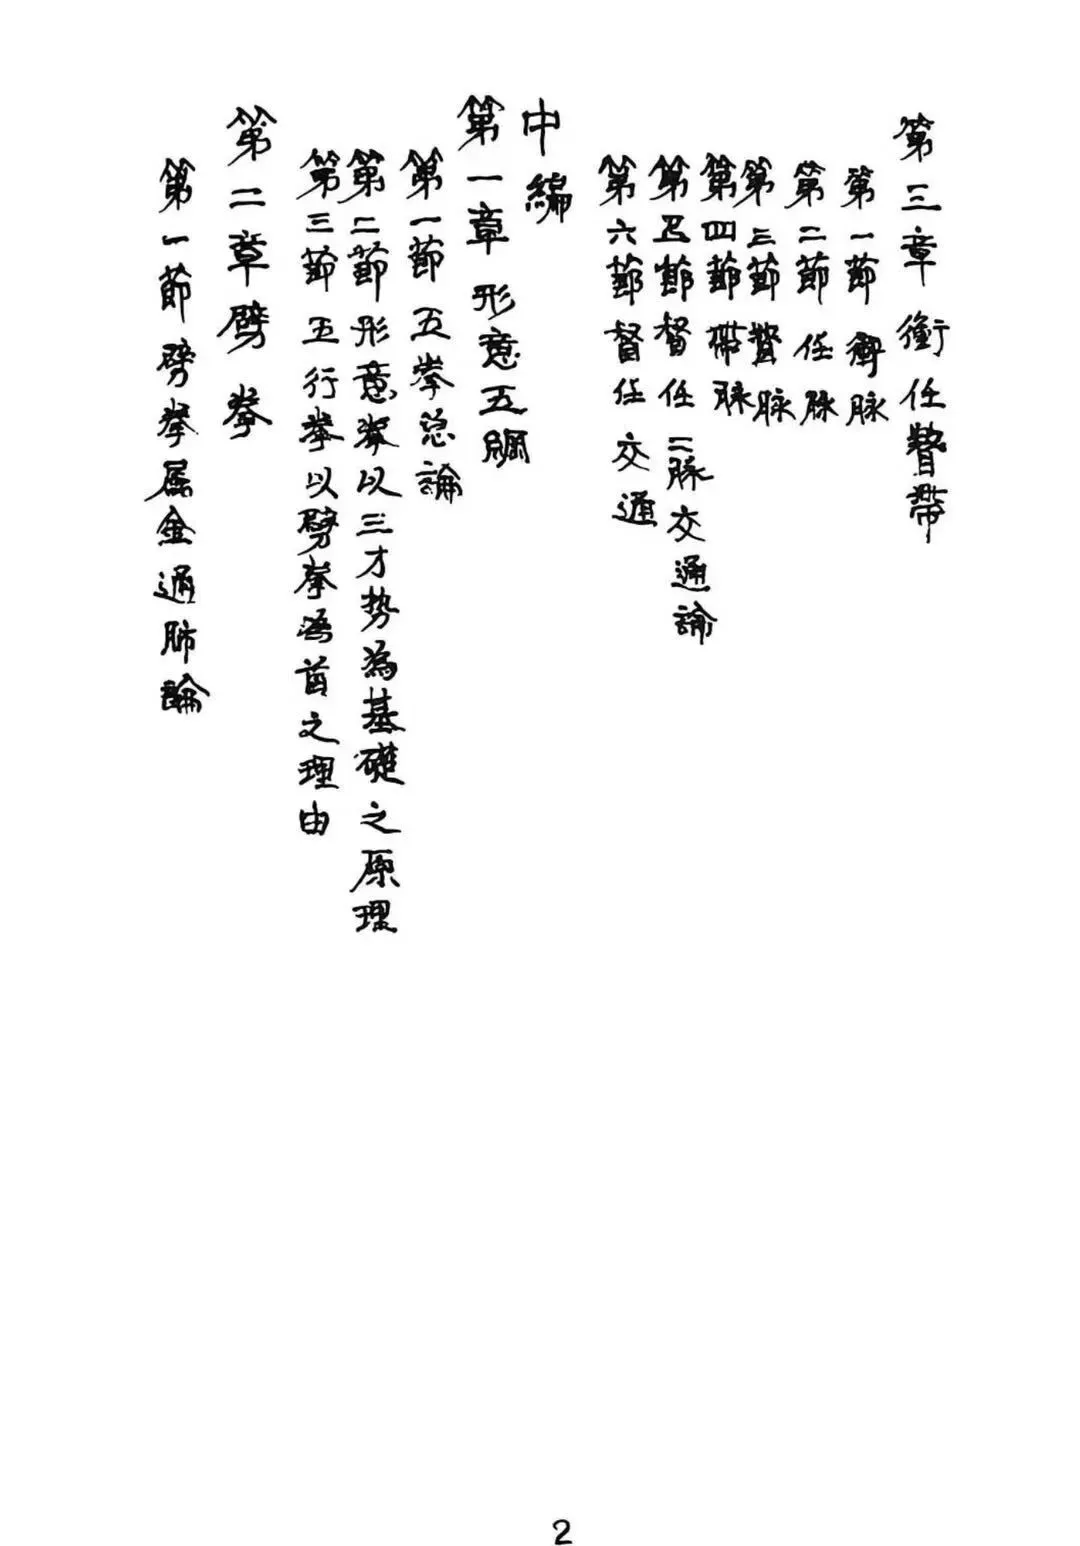 第三章衝任督帶
第一節衝脉
第二節任脉
第三節督脉
第四節帶脉
第五節督任二脉交通論
第六節督任交通
中編
第一章形意五綱
第一節五拳总論
第二節形意拳以三才势為基礎之原理
第三節五行拳以劈拳為首之理由
第二章劈拳
第一節劈拳属金通肺論
2